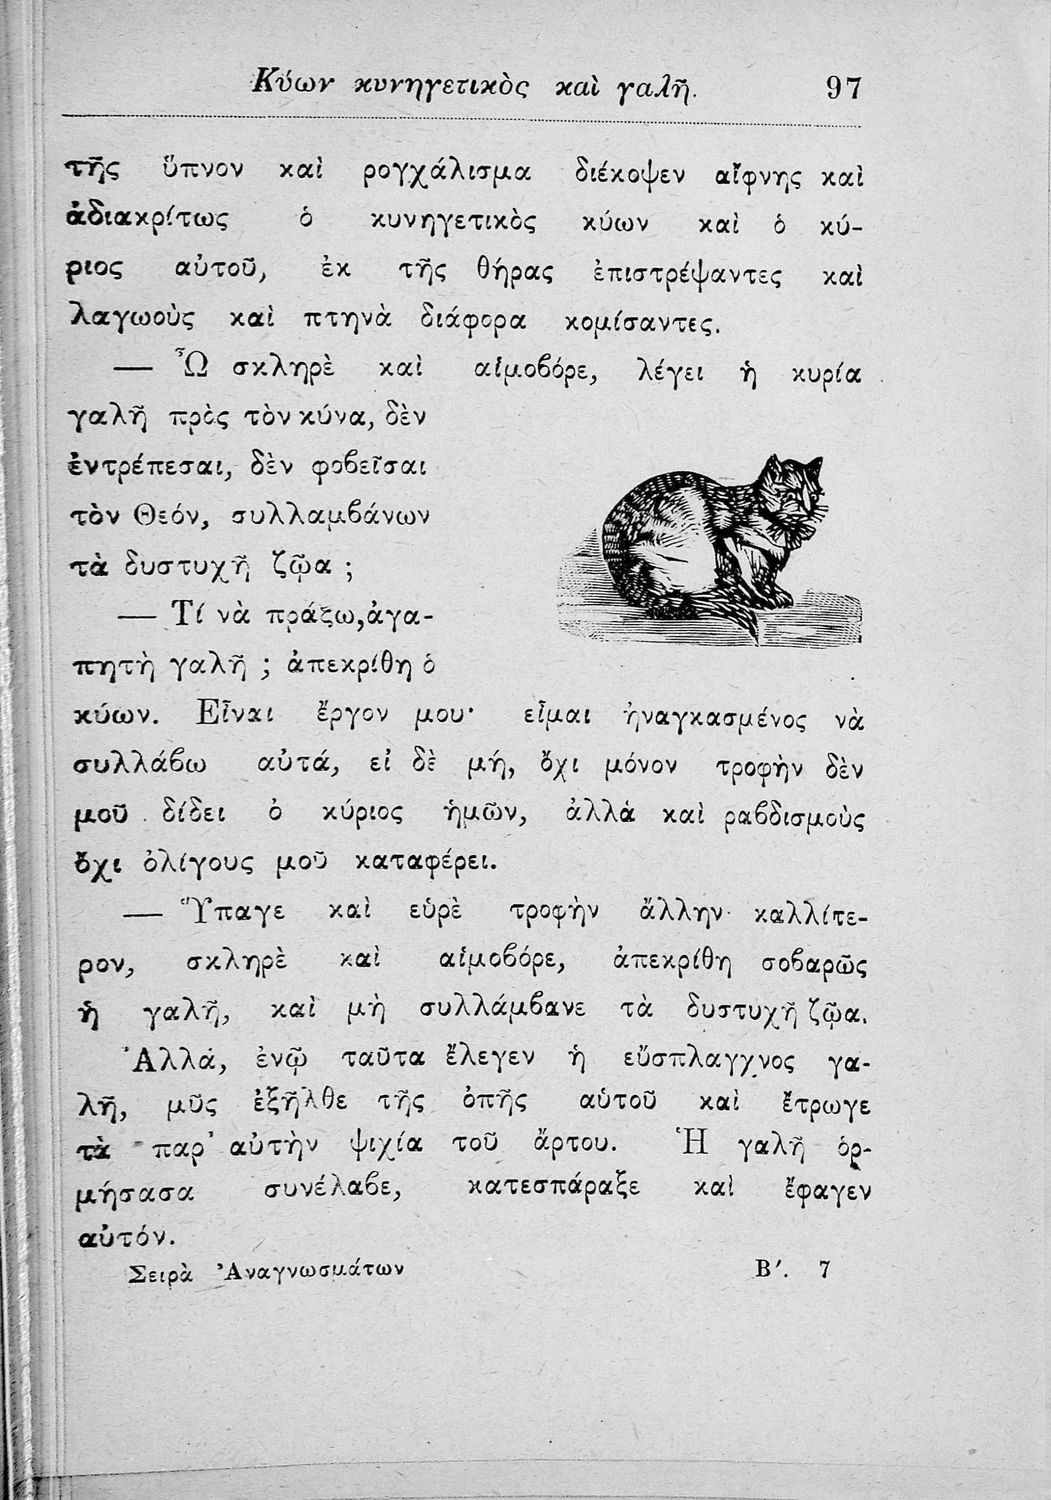 Κύων κυνηγετικὸς καὶ γαλῆ. 97
τῆς ὕπνον καὶ ρογχάλισμα διέκοψεν αἴφνης καὶ
ἀδιακρίτως ὁ κυνηγετικὸς κύων καὶ ὁ κύ-
ριος αὐτοῦ, ἐκ τῆς θήρας ἐπιστρέψαντες καὶ
λαγωοὺς καὶ πτηνὰ διάφορα κομίσαντες.
— Ὦ σκληρὲ καὶ αἱμοβόρε, λέγει ἡ κυρία
γαλῆ πρὸς τὸν κύνα, δὲν
ἐντρέπεσαι, δὲν φοβεῖσαι
τὸν Θεόν, συλλαμβάνων
τὰ δυστυχῆ ζῷα ;
— Τί νὰ πράξω, ἀγα-
πητὴ γαλῆ ; ἀπεκρίθη ὁ
κύων. Εἶναι ἔργον μου· εἶμαι ἠναγκασμένος νὰ
συλλάβω αὐτά, εἰ δὲ μή, ὄχι μόνον τροφὴν δὲν
μοῦ δίδει ὁ κύριος ἡμῶν, ἀλλὰ καὶ ραβδισμοὺς
ὄχι ὀλίγους μοῦ καταφέρει.
— Ὕπαγε καὶ εὑρὲ τροφὴν ἄλλην καλλίτε-
ρον, σκληρὲ καὶ αἱμοβόρε, ἀπεκρίθη σοβαρῶς
ἡ γαλῆ, καὶ μὴ συλλάμβανε τὰ δυστυχῆ ζῷα.
Ἀλλά, ἐνῷ ταῦτα ἔλεγεν ἡ εὔσπλαγχνος γα-
λῆ, μῦς ἐξῆλθε τῆς ὀπῆς αὑτοῦ καὶ ἔτρωγε
τὰ παρ' αὐτὴν ψιχία τοῦ ἄρτου. Ἡ γαλῆ ὁρ-
μήσασα συνέλαβε, κατεσπάραξε καὶ ἔφαγεν
αὐτόν.
Σειρὰ Ἀναγνωσμάτων Β'. 7